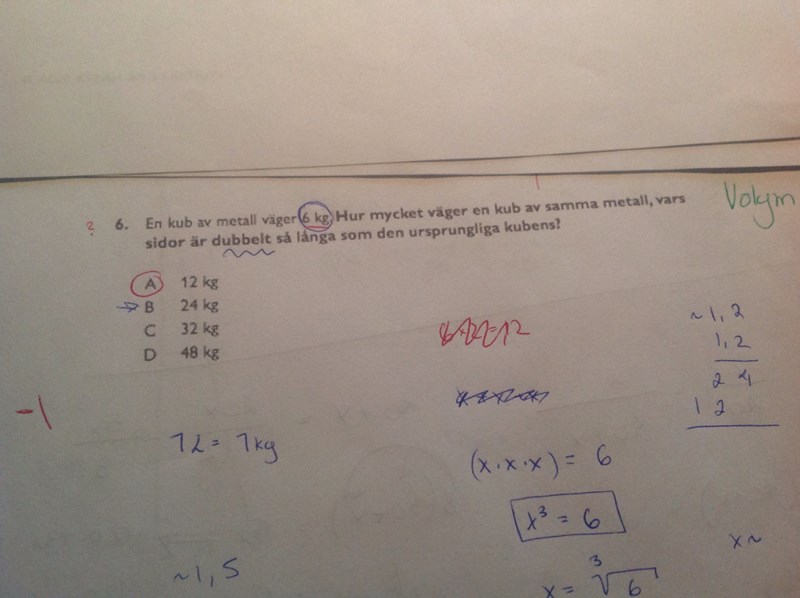 Volym
? 6. En kub av metall väger 6 kg. Hur mycket väger en kub av samma metall, vars
sidor är dubbelt så långa som den ursprungliga kubens?
A 12 kg
B 24 kg
C 32 kg
D 48 kg
~1,2
1,2
2 4
1 2
-1
1L = 1kg
(x·x·x) = 6
x³ = 6
x~
~1,5
x = ³√6